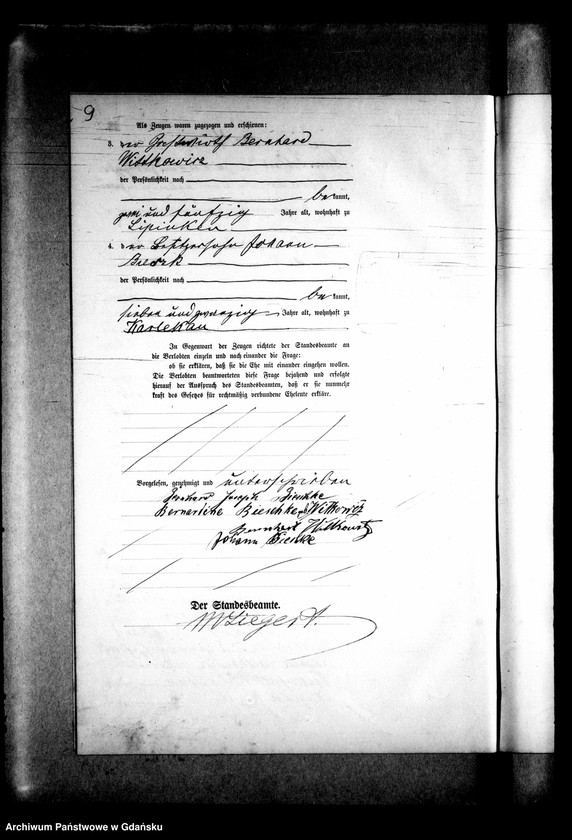 9
Als Zeugen waren zugezogen und erschienen:
3. der Bernhard
Wittkowicz
der Persönlichkeit nach
be kannt,
zwei und fünfzig Jahre alt, wohnhaft zu
4. der Besitzersohn Johann
der Persönlichkeit nach
be kannt,
sieben und zwanzig Jahre alt, wohnhaft zu
Karlekau
In Gegenwart der Zeugen richtete der Standesbeamte an
die Verlobten einzeln und nach einander die Frage:
ob sie erklären, daß sie die Ehe mit einander eingehen wollen.
Die Verlobten beantworteten diese Frage bejahend und erfolgte
hierauf der Ausspruch des Standesbeamten, daß er sie nunmehr
kraft des Gesetzes für rechtmäßig verbundene Eheleute erkläre.
Vorgelesen, genehmigt und unterschrieben
Joseph
Wittkowitz
Johann
Der Standesbeamte.
Archiwum Państwowe w Gdańsku